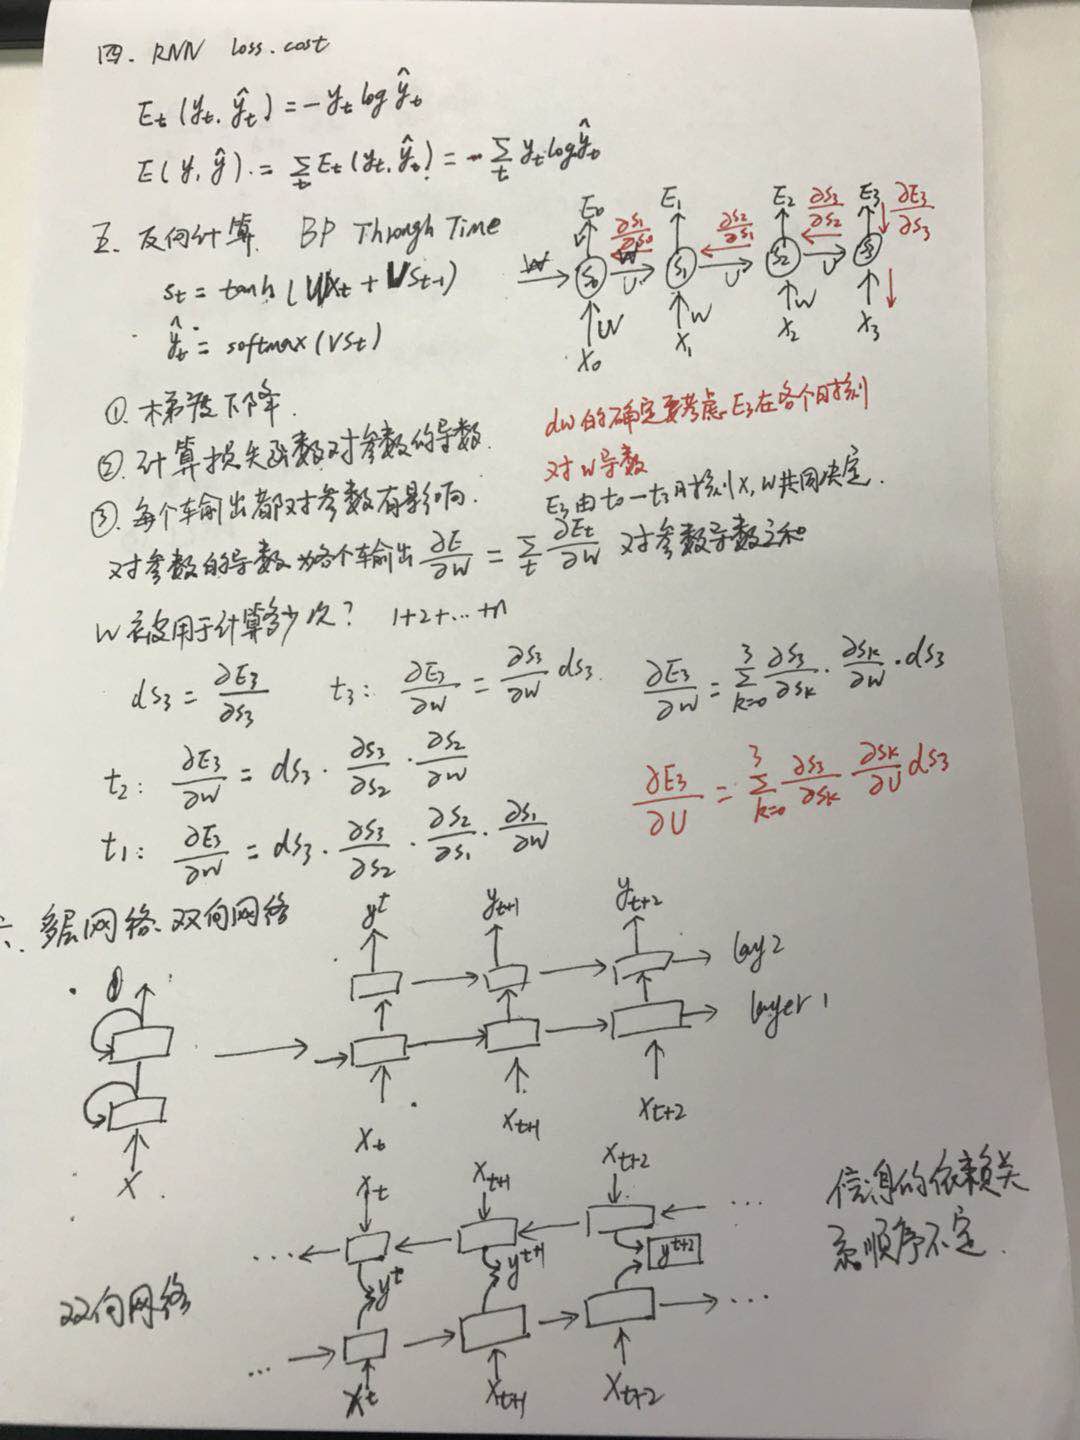 四. RNN loss.cost
E_t(y_t, ŷ_t) = -y_t log ŷ_t
E(y, ŷ) = Σ_t E_t(y_t, ŷ_t) = -Σ_t y_t log ŷ_t
五. 反向计算. BP Through Time
s_t = tanh(Ux_t + Ws_{t-1})
ŷ_t = softmax(Vs_t)
E_0 E_1 E_2 E_3 ∂E_3/∂s_3
∂s_1/∂s_0 ∂s_2/∂s_1 ∂s_3/∂s_2
W s_0 U s_1 U s_2 U s_3
W W W
x_0 x_1 x_2 x_3
① 梯度下降.
② 计算损失函数对参数的导数.
③. 每个车输出都对参数有影响.
dw的确定要考虑E_3在各个时刻
对w导数
E_3由t_0-t_3时刻x,w共同决定.
对参数的导数为各个车输出 ∂E/∂W = Σ_t ∂E_t/∂W 对参数导数之和
W被用于计算多少次? 1+2+...+n
ds_3 = ∂E_3/∂s_3 t_3: ∂E_3/∂W = ∂s_3/∂W ds_3. ∂E_3/∂W = Σ_{k=0}^3 ∂s_3/∂s_k · ∂s_k/∂W · ds_3
t_2: ∂E_3/∂W = ds_3 · ∂s_3/∂s_2 · ∂s_2/∂W
∂E_3/∂U = Σ_{k=0}^3 ∂s_3/∂s_k ∂s_k/∂U ds_3
t_1: ∂E_3/∂W = ds_3 · ∂s_3/∂s_2 · ∂s_2/∂s_1 · ∂s_1/∂W
六. 多层网络.双向网络
y^t y_{t+1} y_{t+2}
lay2
layer1
x
x_t x_{t+1} x_{t+2}
x_t x_{t+1} x_{t+2}
... ...
信息的依赖关
系顺序不定.
y^t y^{t+1} y^{t+2}
双向网络
... ...
x_t x_{t+1} x_{t+2}